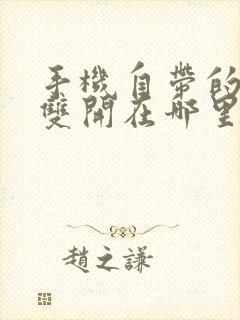 手機自帶的
雙開在哪里
趙之謙